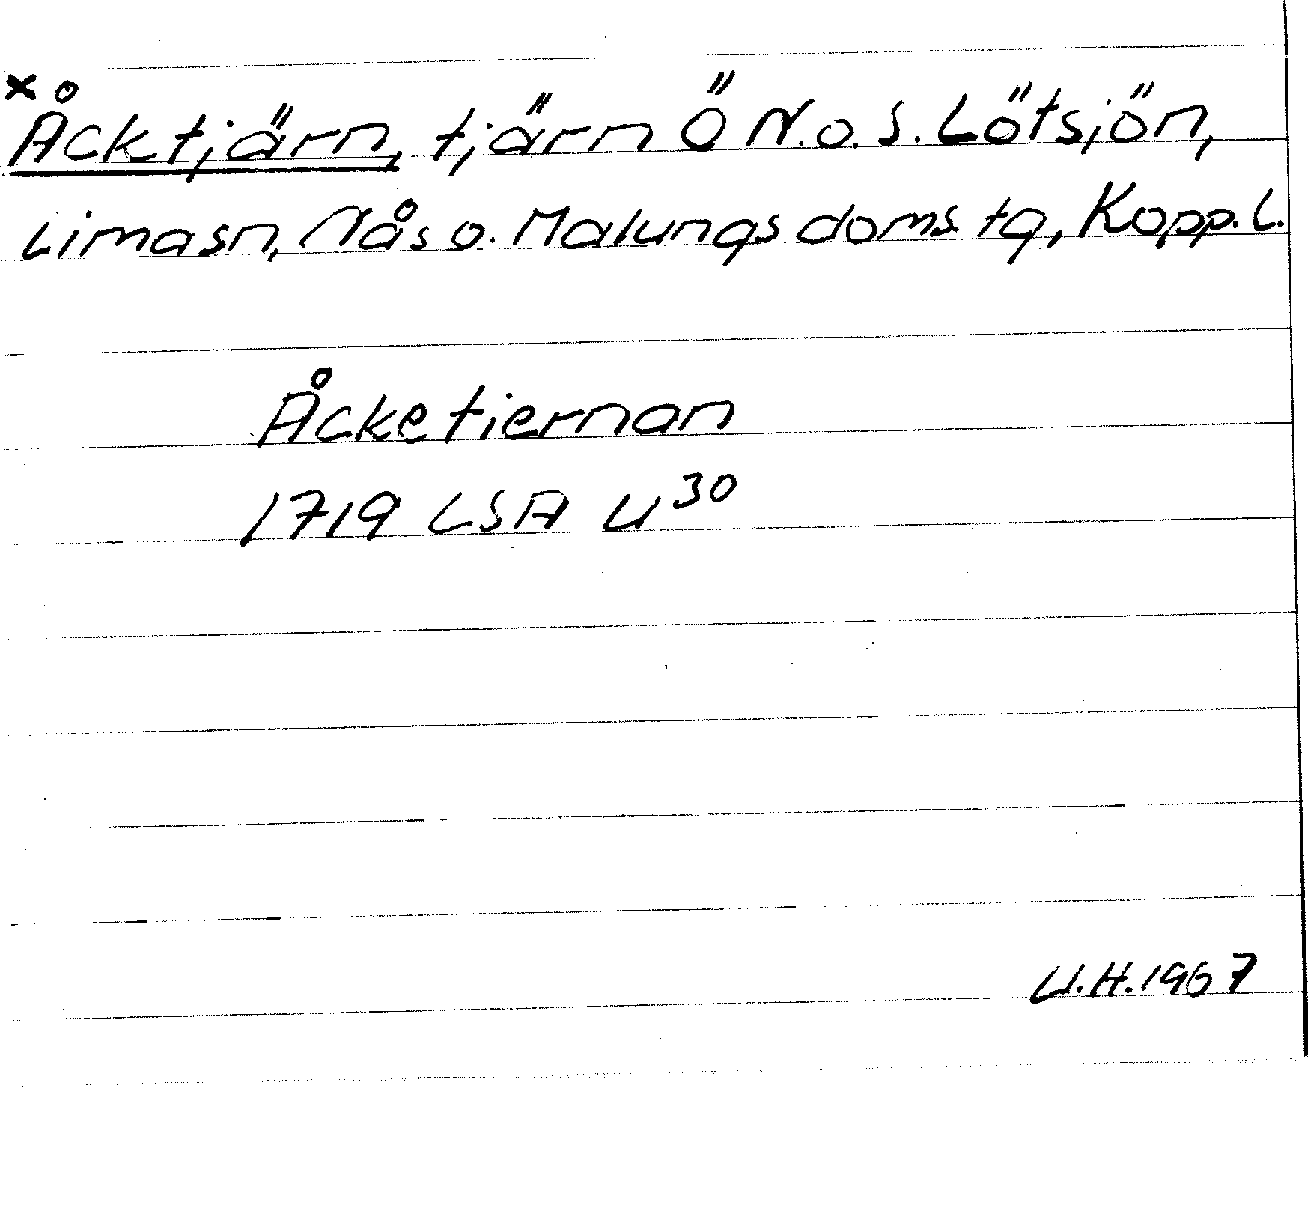 × Åcktjärn, tjärn Ö N.o.S. Lötsjön,
Lima sn, Nås o. Malungs doms. tg, Kopp. L.
Åcketiernan
1719 LSA U³⁰
U.H. 1967